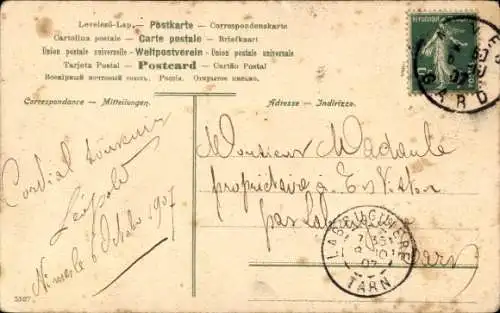 Levelező-Lap. Postkarte - Correspondenskarte
Cartolina postale - Carte postale - Briefkaart
Union postale universelle - Weltpostverein - Unión postale universale
Tarjeta Postal - Postcard - Cartão Postal
Всемірный почтовый союз. Россія. Открытое письмо.
Correspondance - Mitteilungen.
Adresse - Indirizzo.
Cordial souvenir
Léopold
Nimes le 6 Octobre 1907
Monsieur
propriétaire à
par
Tarn
GARD
LABRUGUIERE
TARN
5507